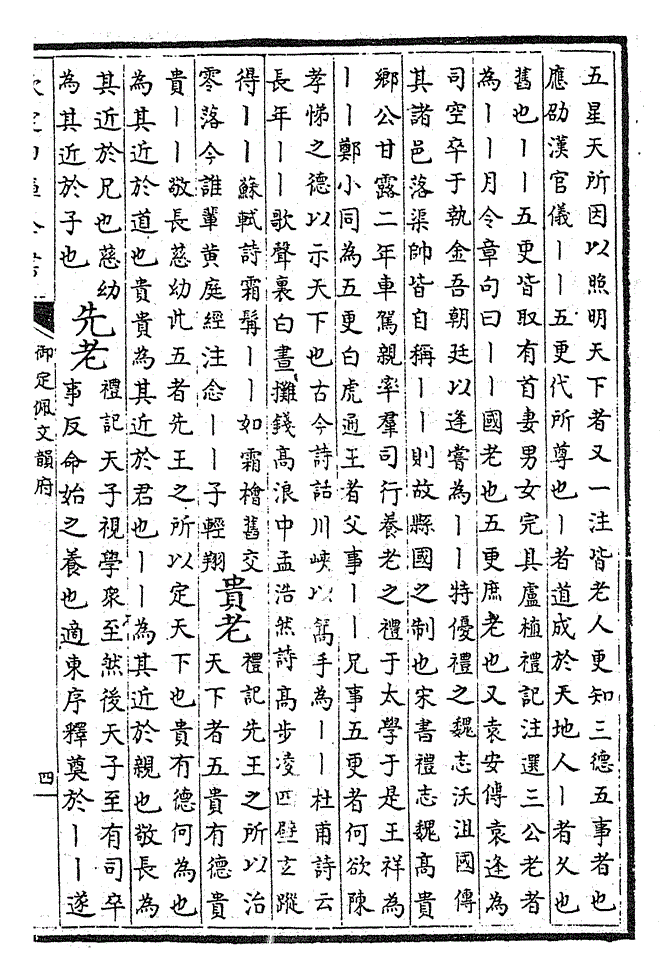 五星天所因以照明天下者又一注皆老人更知三德五事者也
應劭漢官儀丨丨五更代所尊也丨者道成於天地人丨者久也
舊也丨丨五更皆取有首妻男女完具盧植禮記注選三公老者
為丨丨月令章句曰丨丨國老也五更庶老也又袁安傳袁逢為
司空卒于執金吾朝廷以逢嘗為丨丨特優禮之魏志沃沮國傳
其諸邑落渠帥皆自稱丨丨則故縣國之制也宋書禮志魏高貴
鄉公甘露二年車駕親率羣司行養老之禮于太學于是王祥為
丨丨鄭小同為五更白虎通王者父事丨丨兄事五更者何欲陳
孝悌之德以示天下也古今詩話川峽以篙手為丨丨杜甫詩云
長年丨丨歌聲裏白晝攤錢高浪中孟浩然詩高步凌四壁玄蹤
得丨丨蘇軾詩霜髯丨丨如霜檜舊交
零落今誰輩黄庭經注念丨丨子輕翔
貴老
禮記先王之所以治
天下者五貴有德貴
貴丨丨敬長慈幼此五者先王之所以定天下也貴有德何為也
為其近於道也貴貴為其近於君也丨丨為其近於親也敬長為
其近於兄也慈幼
為其近於子也
先老
禮記天子視學衆至然後天子至有司卒
事反命始之養也適東序釋奠於丨丨遂
御定佩文韻府
四